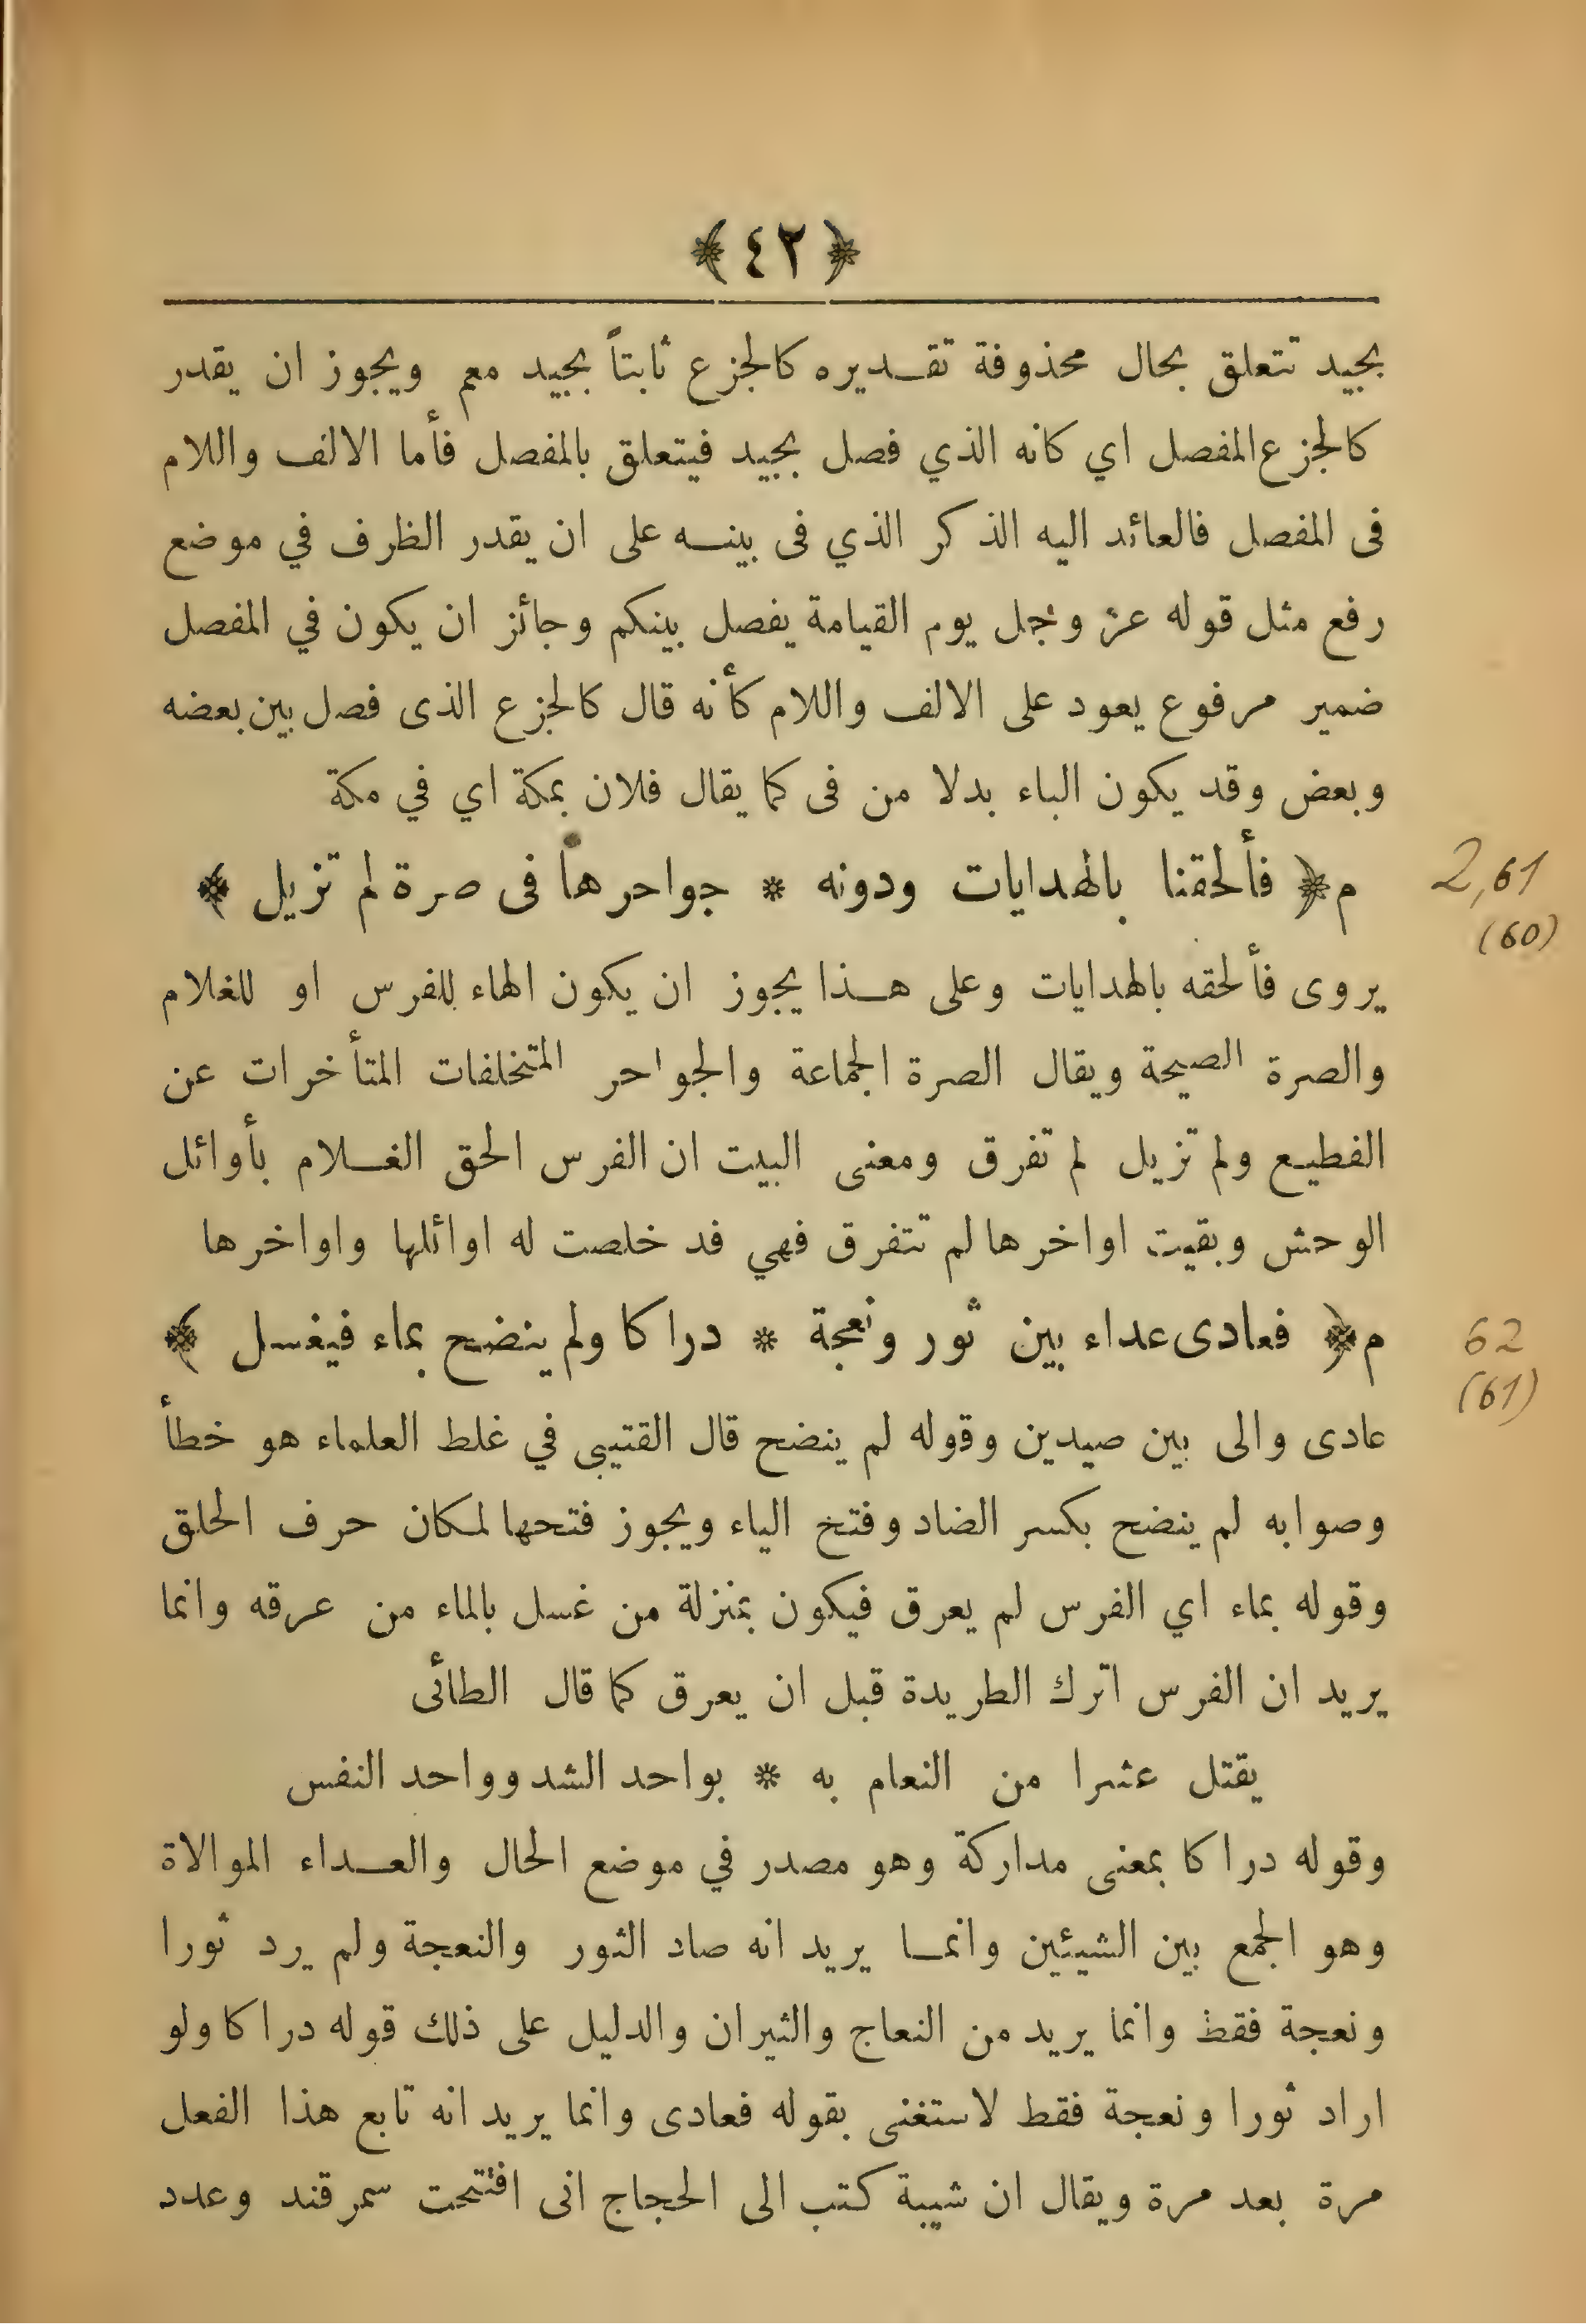 ﴿٤٢﴾
بجيد تتعلق بحال محذوفة تقديره كالجزع ثابتاً بجيد معم ويجوز ان يقدر
كالجزع المفصل اي كانه الذي فصل بجيد فيتعلق بالمفصل فأما الالف واللام
فى المفصل فالعائد اليه الذكر الذي فى بينه على ان يقدر الظرف في موضع
رفع مثل قوله عز وجل يوم القيامة يفصل بينكم وجائز ان يكون في المفصل
ضمير مرفوع يعود على الالف واللام كأنه قال كالجزع الذى فصل بين بعضه
وبعض وقد يكون الباء بدلا من فى كما يقال فلان بمكة اي في مكة
م﴿ فألحقنا بالهدايات ودونه * جواحرها فى صرة لم تزيل ﴾
2,61
(60)
يروى فألحقه بالهدايات وعلى هذا يجوز ان يكون الهاء للفرس او للغلام
والصرة الصيحة ويقال الصرة الجماعة والجواحر المتخلفات المتأخرات عن
القطيع ولم تزيل لم تفرق ومعنى البيت ان الفرس الحق الغلام بأوائل
الوحش وبقيت اواخرها لم تتفرق فهي قد خلصت له اوائلها واواخرها
م﴿ فعادى عداء بين ثور ونعجة * دراكا ولم ينضح بماء فيغسل ﴾
62
(61)
عادى والى بين صيدين وقوله لم ينضح قال القتيبى في غلط العلماء هو خطأ
وصوابه لم ينضح بكسر الضاد وفتح الياء ويجوز فتحها لمكان حرف الحلق
وقوله بماء اي الفرس لم يعرق فيكون بمنزلة من غسل بالماء من عرقه وانما
يريد ان الفرس اترك الطريدة قبل ان يعرق كما قال الطائى
يقتل عشرا من النعام به * بواحد الشد وواحد النفس
وقوله دراكا بمعنى مداركة وهو مصدر في موضع الحال والعداء الموالاة
وهو الجمع بين الشيئين وانما يريد انه صاد الثور والنعجة ولم يرد ثورا
ونعجة فقظ وانما يريد من النعاج والثيران والدليل على ذلك قوله دراكا ولو
اراد ثورا ونعجة فقط لاستغنى بقوله فعادى وانما يريد انه تابع هذا الفعل
مرة بعد مرة ويقال ان شيبة كتب الى الحجاج انى افتتحت سمرقند وعدد